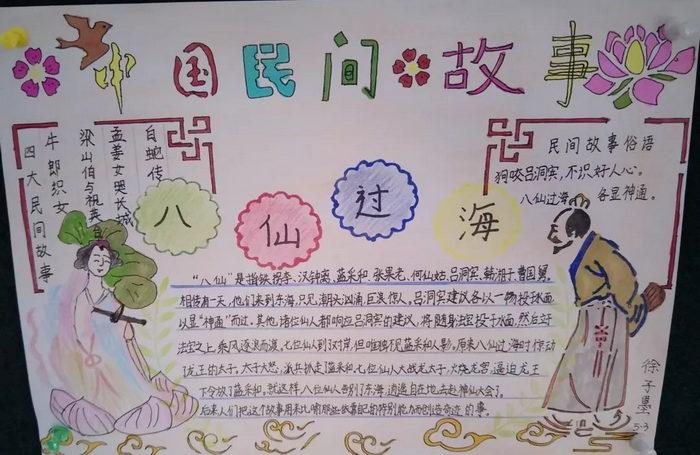 中国民间故事
白蛇传
孟姜女哭长城
梁山伯与祝英台
牛郎织女
四大民间故事
民间故事俗语
狗咬吕洞宾，不识好人心。
八仙过海，各显神通。
八仙过海
“八仙”是指铁拐李、汉钟离、蓝采和、张果老、何仙姑、吕洞宾、韩湘子、曹国舅。
相传有一天，他们来到东海，只见潮头汹涌，巨浪惊人。吕洞宾建议各以一物投于水面，
以显“神通”而过。其他诸位仙人都响应吕洞宾的建议，将随身法宝投于水面，然后立于
法宝之上，乘风逐浪而渡。七位仙人到了对岸，但唯独不见蓝采和人影。原来八仙过海时惊动
龙王的太子，太子大怒，派兵抓走了蓝采和，七位仙人大战龙太子，火烧龙宫，逼迫龙王
下令放了蓝采和。就这样，八位仙人告别了东海，逍遥自在地去赴神仙大会了。
后来人们把这个故事用来比喻那些依靠自己的特别能力而创造奇迹的事。
徐子墨
5.3